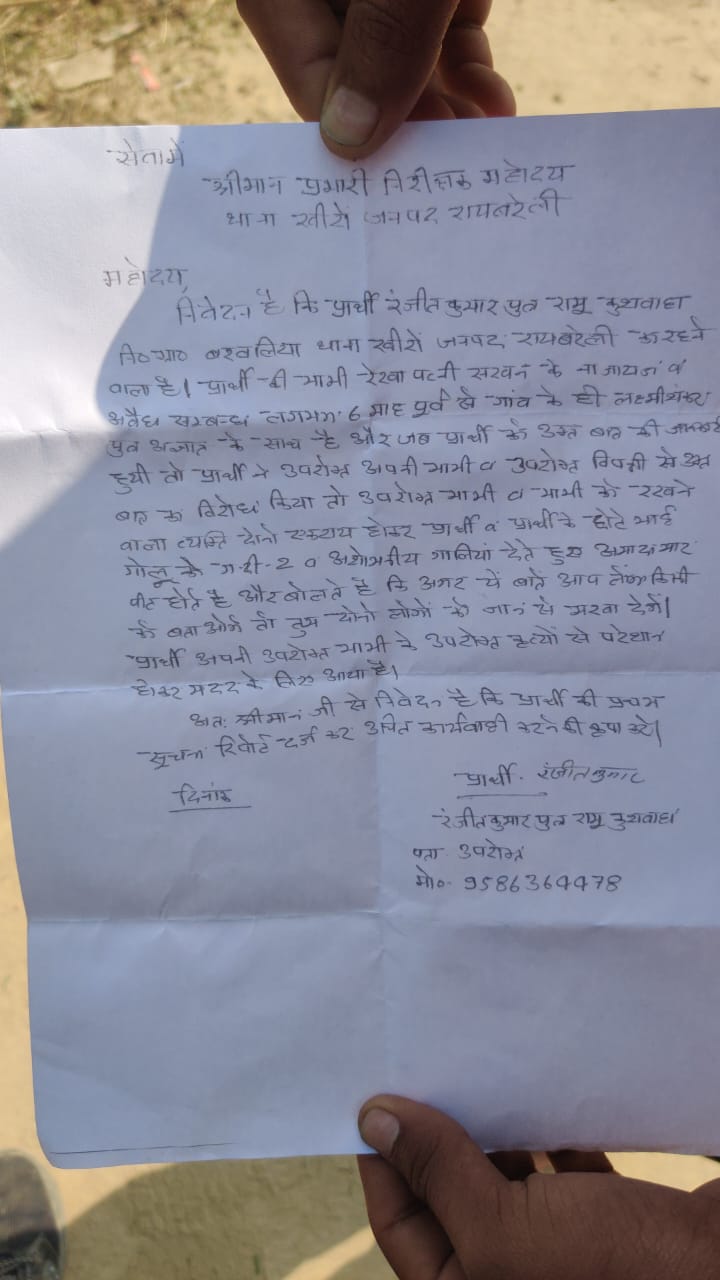 सेवामें
श्रीमान प्रभारी निरीक्षक महोदय
थाना खीरों जनपद रायबरेली
महोदय,
निवेदन है कि प्रार्थी रंजीत कुमार पुत्र रामू कुशवाहा
नि० ग्रा० बरवलिया थाना खीरों जनपद रायबरेली का रहने
वाला है। प्रार्थी की भाभी रेखा पत्नी सरवन के नाजायज व
अवैध सम्बन्ध लगभग 6 माह पूर्व से गांव के ही लक्ष्मीशंकर
पुत्र अज्ञात के साथ है और जब प्रार्थी को उक्त बात की जानकारी
हुयी तो प्रार्थी ने उपरोक्त अपनी भाभी व उपरोक्त विपक्षी से उक्त
बात का विरोध किया तो उपरोक्त भाभी व भाभी को रखने
वाला व्यक्ति दोनो एकराय होकर प्रार्थी व प्रार्थी के छोटे भाई
गोलू को गन्दी-2 व अशोभनीय गालियां देते हुए आमादा मार
पीट होते है और बोलते है कि अगर ये बातें आप लोग किसी
को बताओगे तो तुम दोनो लोगों को जान से मरवा देगें।
प्रार्थी अपनी उपरोक्त भाभी के उपरोक्त कृत्यों से परेशान
होकर मदद के लिए आया है।
अतः श्रीमान जी से निवेदन है कि प्रार्थी की प्रथम
सूचना रिपोर्ट दर्ज कर उचित कार्यवाही करने की कृपा करें।
दिनांक
प्रार्थी. रंजीत कुमार
रंजीत कुमार पुत्र रामू कुशवाहा
पता उपरोक्त
मो०. 9586364478